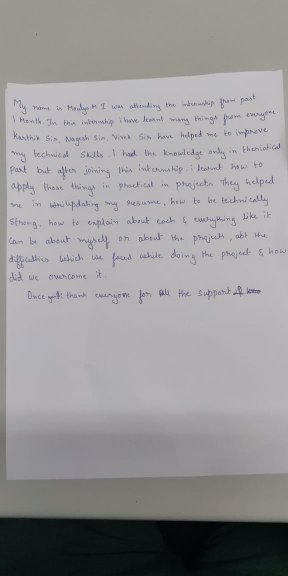 My name is Moulya M I was attending the internship from past
1 Month. In this internship i have learnt many things from everyone
Karthik Sir, Nagesh Sir, Vivek Sir have helped me to improve
my technical skills. I had the knowledge only in theriotical
part but after joining this internship. i learnt how to
apply those things in practical in projects. They helped
me in updating my resume, how to be technically
strong, how to explain about each & everything like it
can be about myself or about the projects, abt the
difficulties which we faced while doing the project & how
did we overcome it.
Once thank everyone for all the support